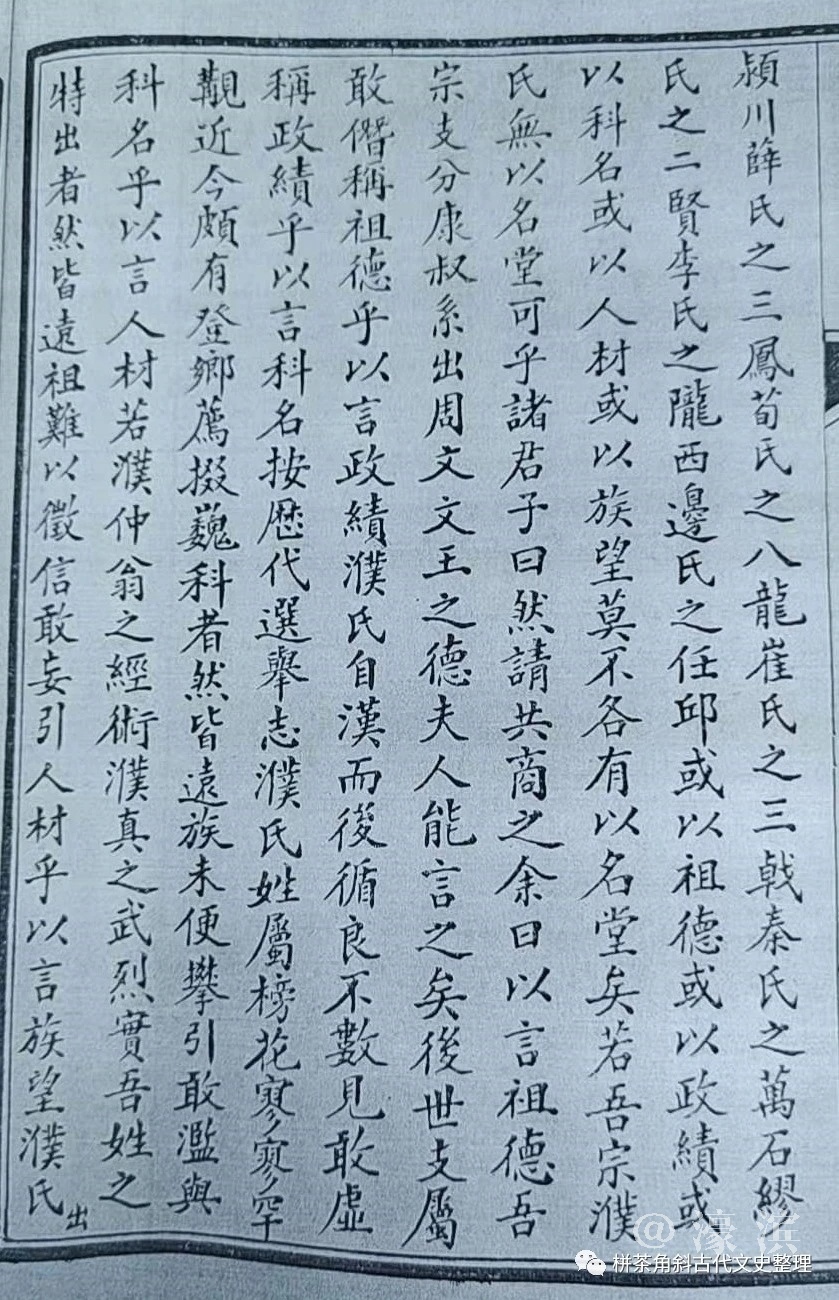 潁川薛氏之三鳳荀氏之八龍崔氏之三戟秦氏之萬石繆
氏之二賢李氏之隴西邊氏之任邱或以祖德或以政績或
以科名或以人材或以族望莫不各有以名堂矣若吾宗濮
氏無以名堂可乎諸君子曰然請共商之余曰以言祖德吾
宗支分康叔系出周文文王之德夫人能言之矣後世支屬
敢僭稱祖德乎以言政績濮氏自漢而後循良不數見敢虛
稱政績乎以言科名按歷代選舉志濮氏姓屬榜花寥寥罕
覯近今頗有登鄉薦掇巍科者然皆遠族未便攀引敢濫與
科名乎以言人材若濮仲翁之經術濮真之武烈實吾姓之
特出者然皆遠祖難以徵信敢妄引人材乎以言族望濮氏
出
@濠浜
栟茶角斜古代文史整理